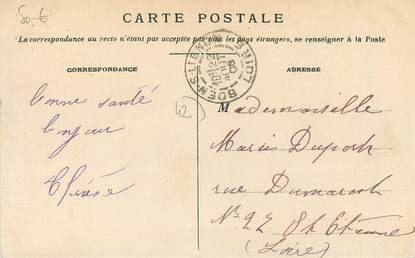 50-€
CARTE POSTALE
La correspondance au recto n'étant pas acceptée par tous les pays étrangers, se renseigner à la Poste
CORRESPONDANCE
ADRESSE
bonne santé
bonjour
42
Mademoiselle
Marie Duport
rue Dumarest
N° 27 St Etienne
(Loire)
BOEN-S-LIGNON
LOIRE
08